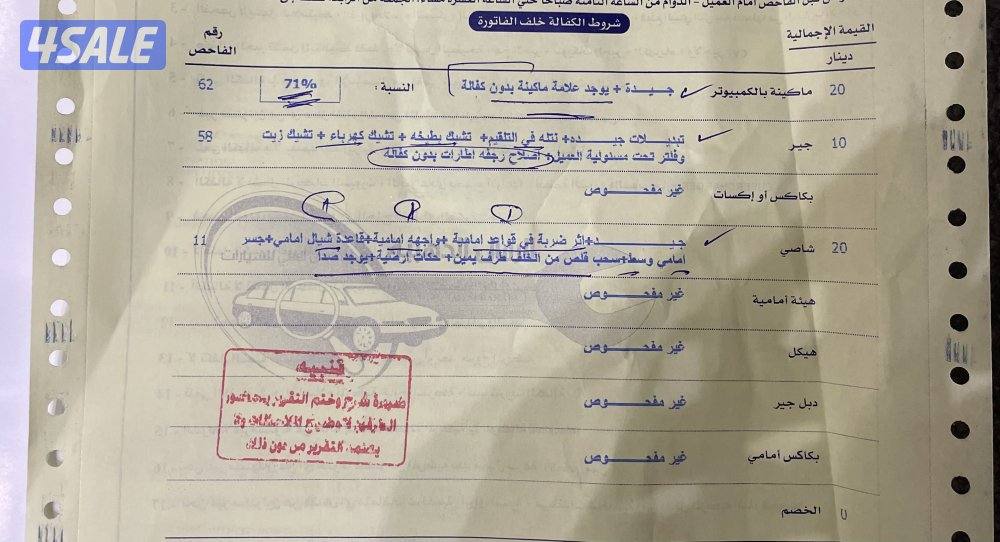 4SALE
شروط الكفالة خلف الفاتورة
القيمة الإجمالية
دينار
رقم
الفاحص
20 ماكينة بالكمبيوتر جيـــدة + يوجد علامة ماكينة بدون كفالة النسبة : 71% 62
10 جير تبديـــلات جيـــده+ نتله في التلقيم+ تشيك بطيخه + تشتيك كهرباء + تشيك زيت 58
وفلتر تحت مسئولية العميل+ اصلاح رجفه اطارات بدون كفالة
بكاكس أو إكسات غير مفحـــوص
20 شاصي جيـــد+اثر ضربة في قواعد امامية +واجهه إمامية+قاعدة شيال امامي+جسر 11
امامي وسط+سحب قلص من الخلف طرف يمين+ حكات ارضية+يوجد صدأ
هيئة أمامية غير مفحـــوص
هيكل غير مفحـــوص
دبل جير غير مفحـــوص
بكاكس أمامي غير مفحـــوص
الخصم
تنبيه
وختم التقرير
يعتمد التقرير من دون ذلك